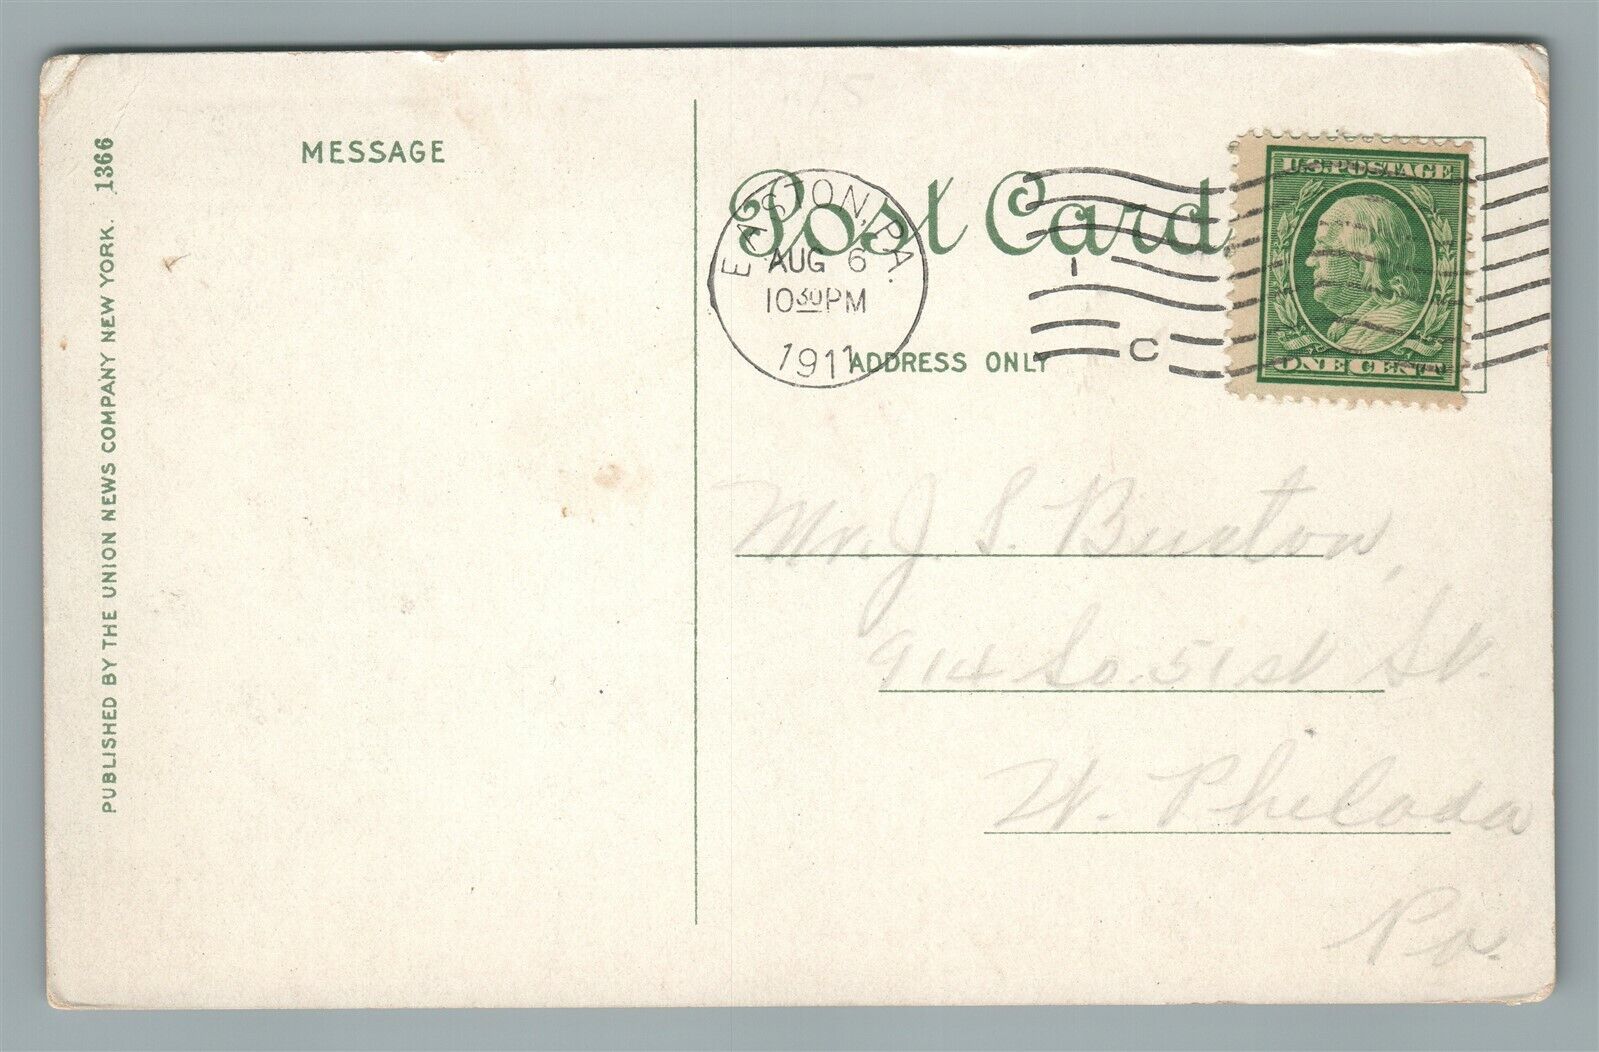 MESSAGE
PUBLISHED BY THE UNION NEWS COMPANY NEW YORK. 1366
Post Card
EASTON, PA.
AUG 6
10 30 PM
1911
1
C
ADDRESS ONLY
U.S. POSTAGE
ONE CENT
Mr. J. S. Burton,
914 So. 51st St.
W. Philada
Pa.